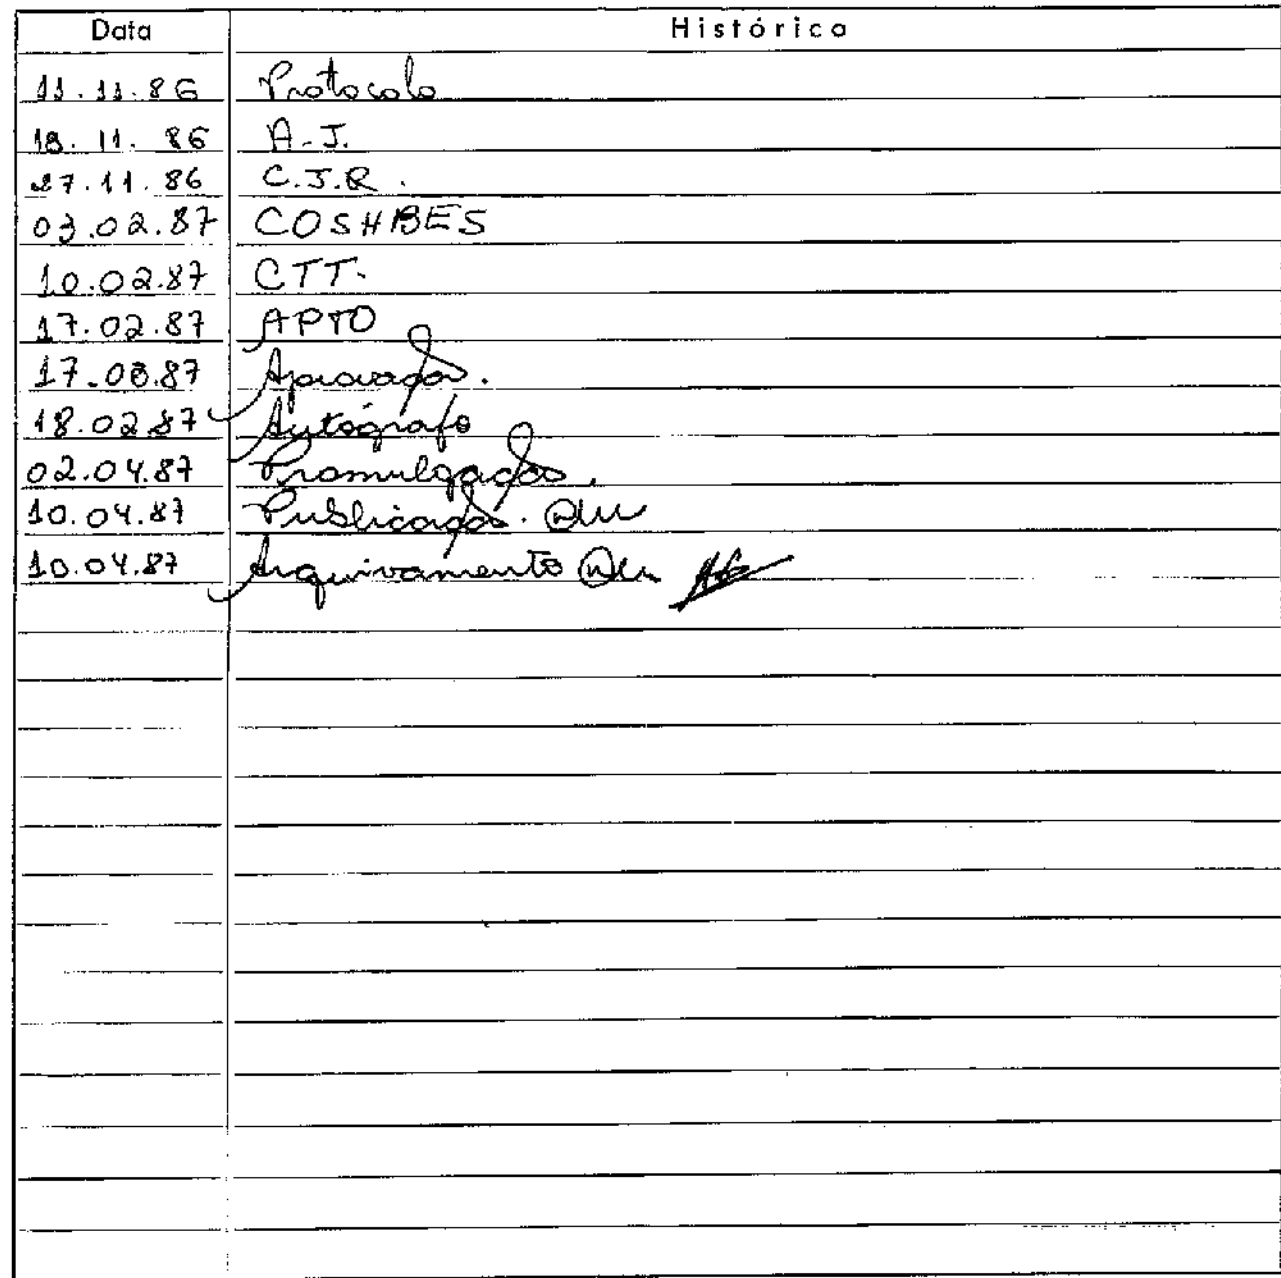 Data Histórico
11.11.86 Protocolo
18. 11. 86 A.J.
27.11.86 C.J.R.
03.02.87 COSHBES
10.02.87 CTT.
17.02.87 APTO
17.03.87 Aprovado.
18.02.87 Autógrafo
02.04.87 Promulgado.
10.04.87 Publicado.
10.04.87 Arquivamento